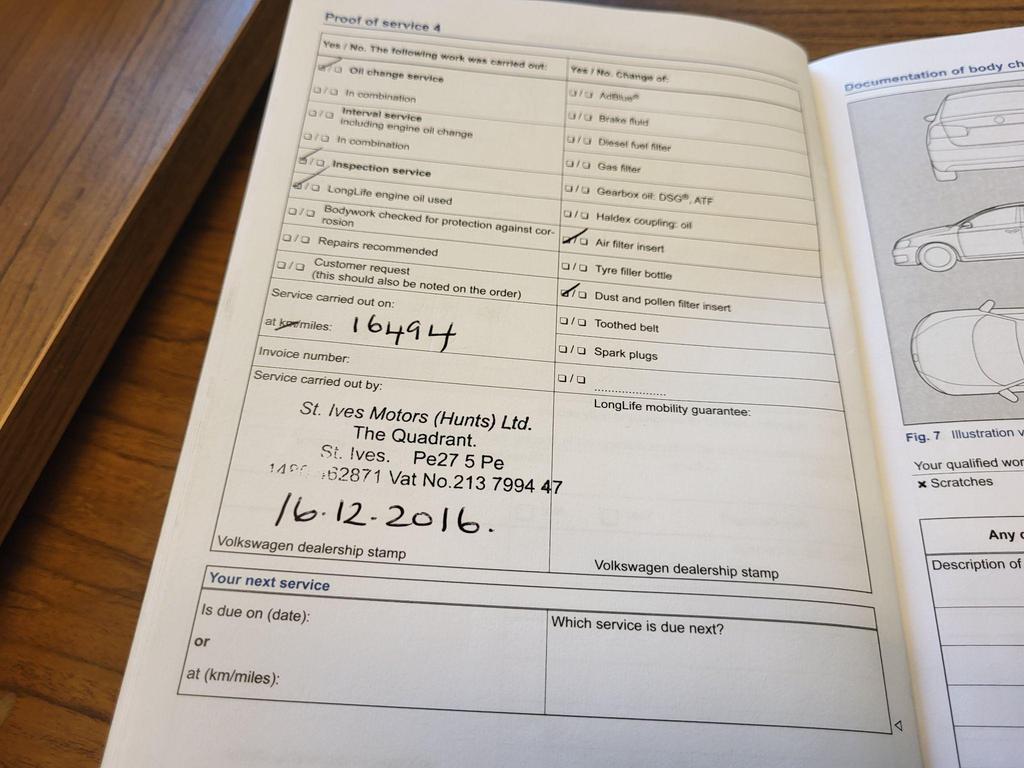 Proof of service 4
Yes / No. The following work was carried out:
Oil change service
In combination
Interval service
including engine oil change
In combination
Inspection service
LongLife engine oil used
Bodywork checked for protection against cor-
rosion
Repairs recommended
Customer request
(this should also be noted on the order)
Service carried out on:
at km/miles: 16494
Invoice number:
Service carried out by:
St. Ives Motors (Hunts) Ltd.
The Quadrant.
St. Ives. Pe27 5 Pe
62871 Vat No.213 7994 47
16.12.2016.
Volkswagen dealership stamp
Yes / No. Change of:
AdBlue®
Brake fluid
Diesel fuel filter
Gas filter
Gearbox oil: DSG®, ATF
Haldex coupling: oil
Air filter insert
Tyre filler bottle
Dust and pollen filter insert
Toothed belt
Spark plugs
LongLife mobility guarantee:
Volkswagen dealership stamp
Your next service
Is due on (date):
or
at (km/miles):
Which service is due next?
Documentation of body ch
Fig. 7 Illustration v
Your qualified wor
× Scratches
Any
Description of